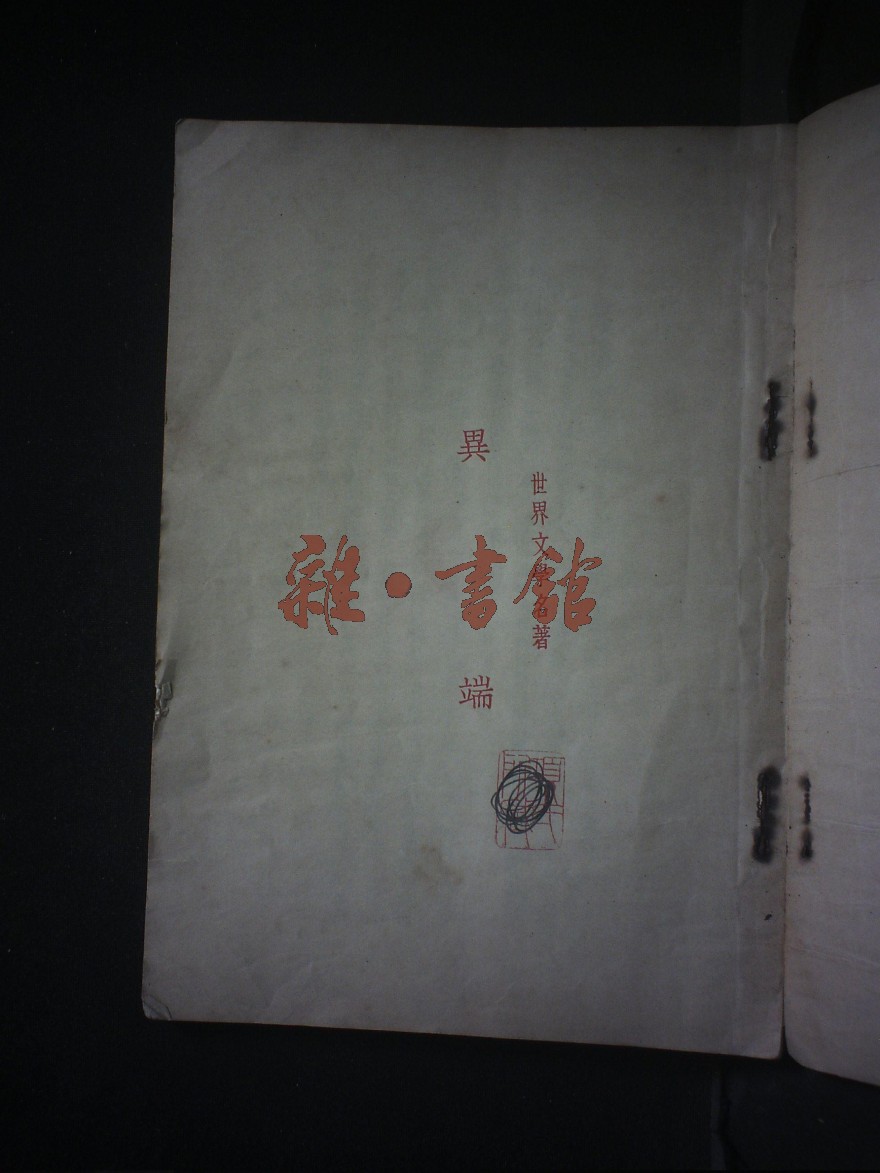 世界文學名著
異端
雜·書館